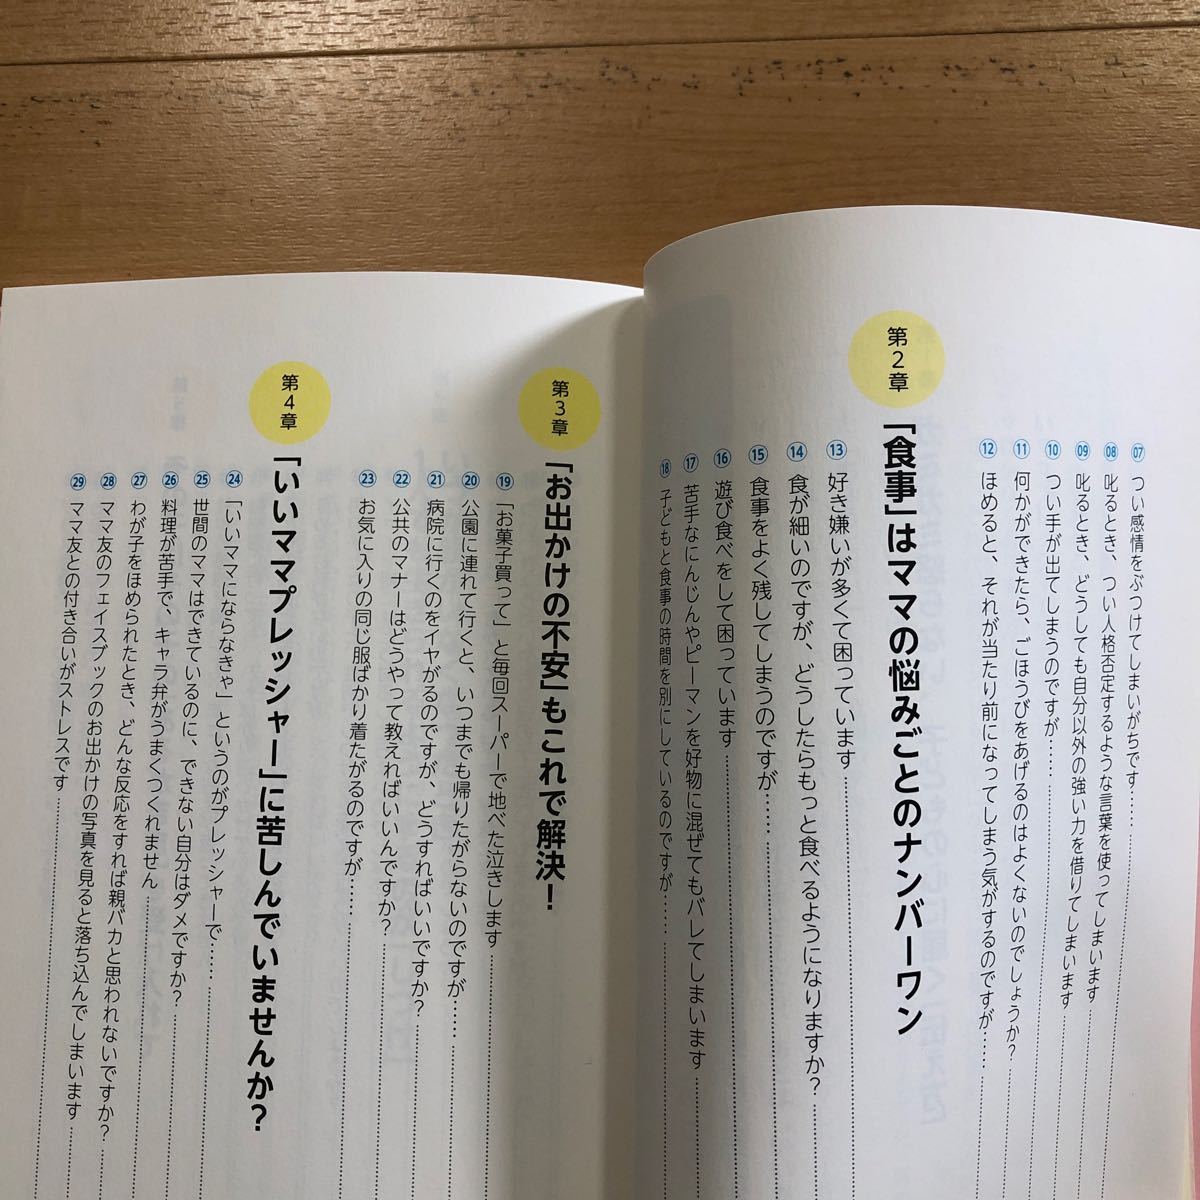 07 つい感情をぶつけてしまいがちです……
08 叱るとき、つい人格否定するような言葉を使ってしまいます
09 叱るとき、どうしても自分以外の強い力を借りてしまいます
10 つい手が出てしまうのですが……
11 何かができたら、ごほうびをあげるのはよくないのでしょうか?
12 ほめると、それが当たり前になってしまう気がするのですが……
第2章
「食事」はママの悩みごとのナンバーワン
13 好き嫌いが多くて困っています
14 食が細いのですが、どうしたらもっと食べるようになりますか?
15 食事をよく残してしまうのですが……
16 遊び食べをして困っています
17 苦手なにんじんやピーマンを好物に混ぜてもバレてしまいます
18 子どもと食事の時間を別にしているのですが……
第3章
「お出かけの不安」もこれで解決!
19 「お菓子買って」と毎回スーパーで地べた泣きします
20 公園に連れて行くと、いつまでも帰りたがらないのですが……
21 病院に行くのをイヤがるのですが、どうすればいいですか?
22 公共のマナーはどうやって教えればいいんですか?
23 お気に入りの同じ服ばかり着たがるのですが……
第4章
「いいママプレッシャー」に苦しんでいませんか?
24 「いいママにならなきゃ」というのがプレッシャーで……
25 世間のママはできているのに、できない自分はダメですか?
26 料理が苦手で、キャラ弁がうまくつくれません
27 わが子をほめられたとき、どんな反応をすれば親バカと思われないですか?
28 ママ友のフェイスブックのお出かけの写真を見ると落ち込んでしまいます
29 ママ友との付き合いがストレスです